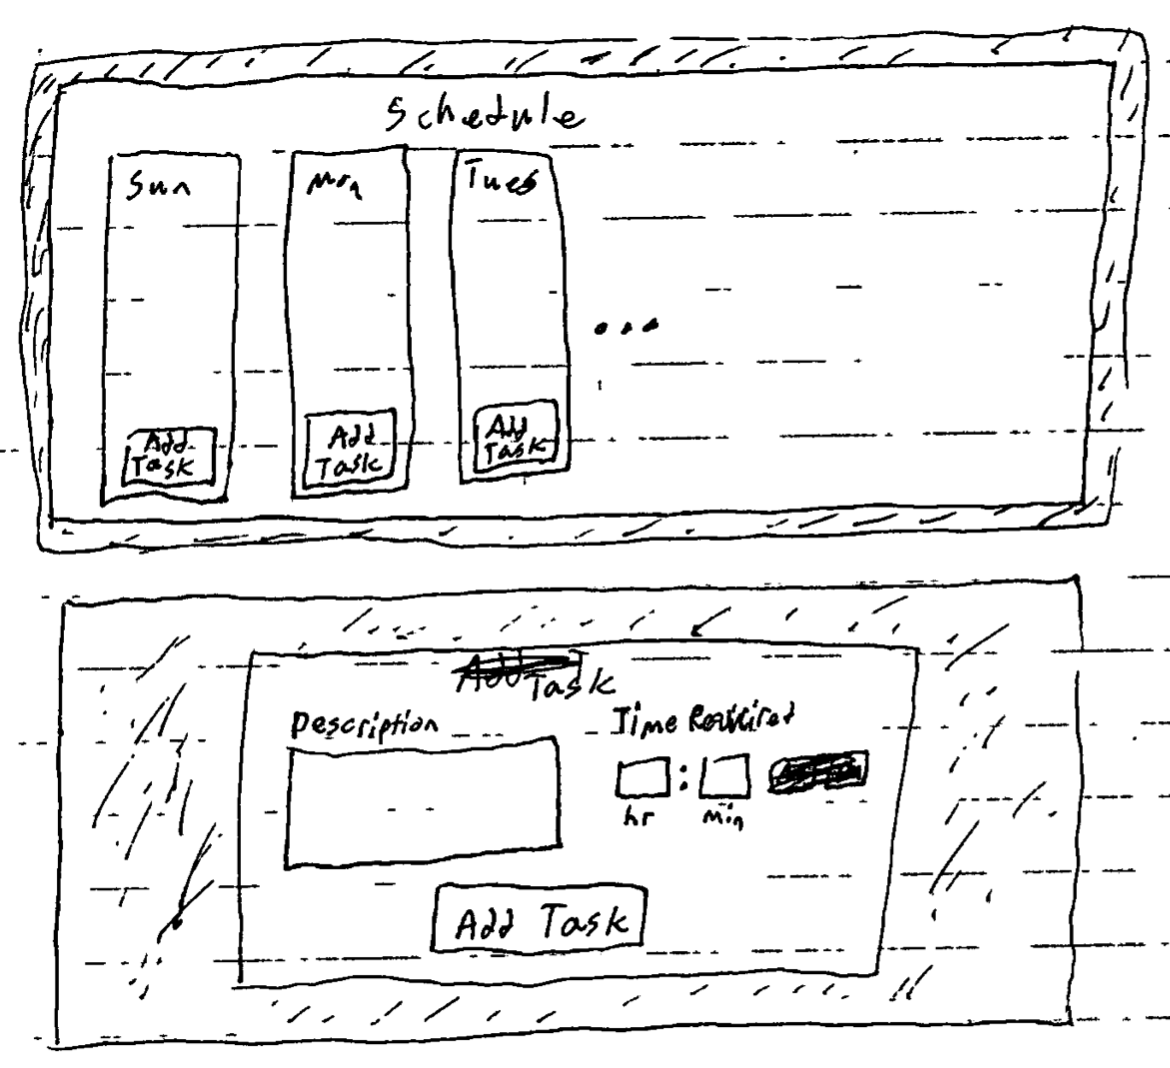 Schedule
Sun
Mon
Tues
...
Add
Task
Add
Task
Add
Task
Task
Description
Time Required
:
hr
min
Add Task